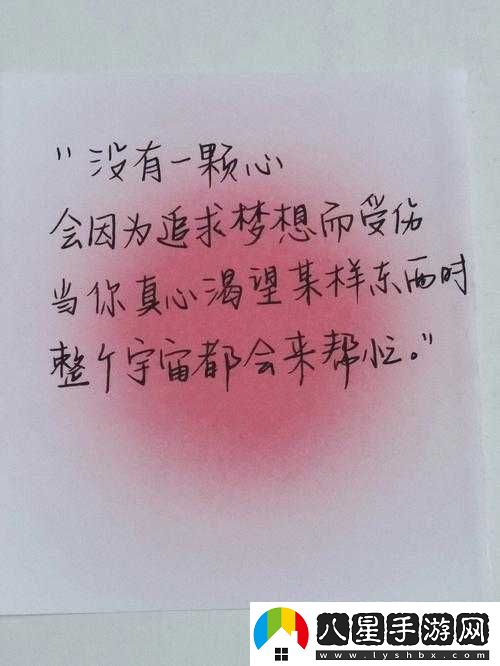 "没有一颗心
会因为追求梦想而受伤
当你真心渴望某样东西时
整个宇宙都会来帮忙。"
八星手游网
www.lyshbx.com